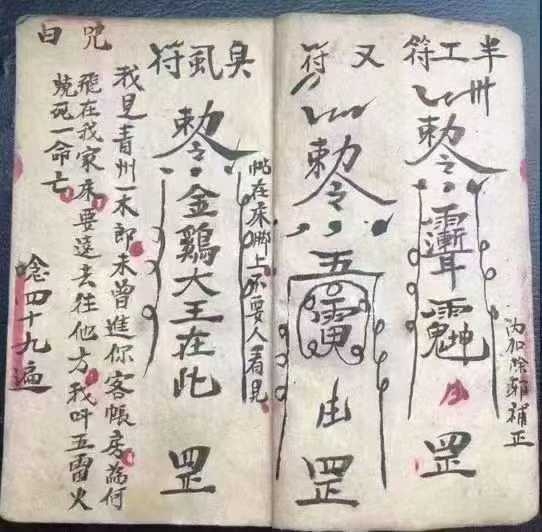 半工符
勅令
罡
内加除邪補正
又符
勅令
五雷
罡
臭虱符
帖在床脚上不要人看見
勅令金鷄大王在此罡
咒曰
我是青州一木郎未曾進你客帳房為何
飛在我家床要遠去往他方我叫五雷火
燒死一命亡
唸四十九遍